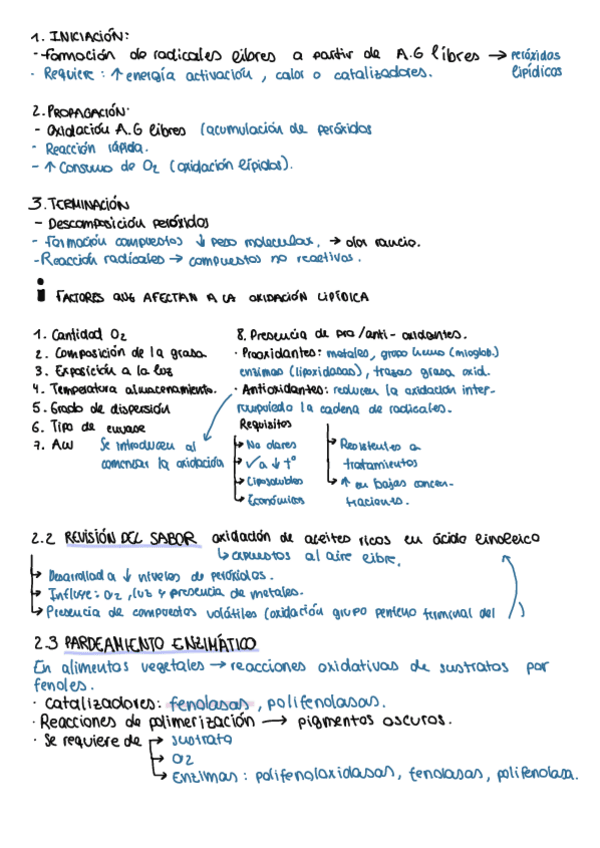 1. INICIACIÓN:
- Formación de radicales libres a partir de A.G libres → peróxidos lipídicos
· Requiere: ↑ energía activación, calor o catalizadores.
2. PROPAGACIÓN:
- Oxidación A.G libres (acumulación de peróxidos
- Reacción rápida.
- ↑ Consumo de O2 (oxidación lípidos).
3. TERMINACIÓN
- Descomposición peróxidos
- Formación compuestos ↓ peso molecular, → olor rancio.
- Reacción radicales → compuestos no reactivos.
i FACTORES QUE AFECTAN A LA OXIDACIÓN LIPÍDICA
1. Cantidad O2
2. Composición de la grasa
3. Exposición a la luz
4. Temperatura almacenamiento.
5. Grado de dispersión
6. Tipo de envase
7. AW
8. Presencia de pro/anti-oxidantes.
· Prooxidantes: metales, grupo hemo (mioglob.)
enzimas (lipoxidasas), trazas grasa oxid.
· Antioxidantes: reducen la oxidación inter-
rumpiedo la cadena de radicales.
Se introducen al
comenzar la oxidación
Requisitos
→ No olores
→ ✓ a ↓ tº
→ Liposolubles
→ Económicos
→ Resistentes a
tratamientos
→ ↑ en bajas concen-
traciones.
2.2 REVISIÓN DEL SABOR oxidación de aceites ricos en ácido linoleico
↳ expuestos al aire libre.
→ Desarrollada ↓ niveles de peróxidos.
→ Influye: O2, luz y presencia de metales.
→ Presencia de compuestos volátiles (oxidación grupo penteno terminal del )
2.3 PARDEAMIENTO ENZIMÁTICO
En alimentos vegetales → reacciones oxidativas de sustratos por
fenoles.
· Catalizadores: fenolasas, polifenolasas.
· Reacciones de polimerización → pigmentos oscuros.
· Se requiere de → sustrato
→ O2
→ Enzimas: polifenoloxidasas, fenolasas, polifenolasa.